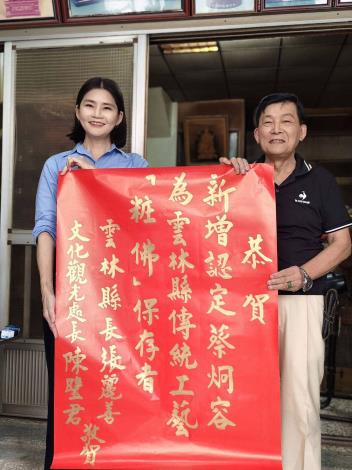 恭賀
新增認定蔡炯容
為雲林縣傳統工藝
「粧佛」保存者
雲林縣長張麗善
文化觀光處長陳璧君
敬賀